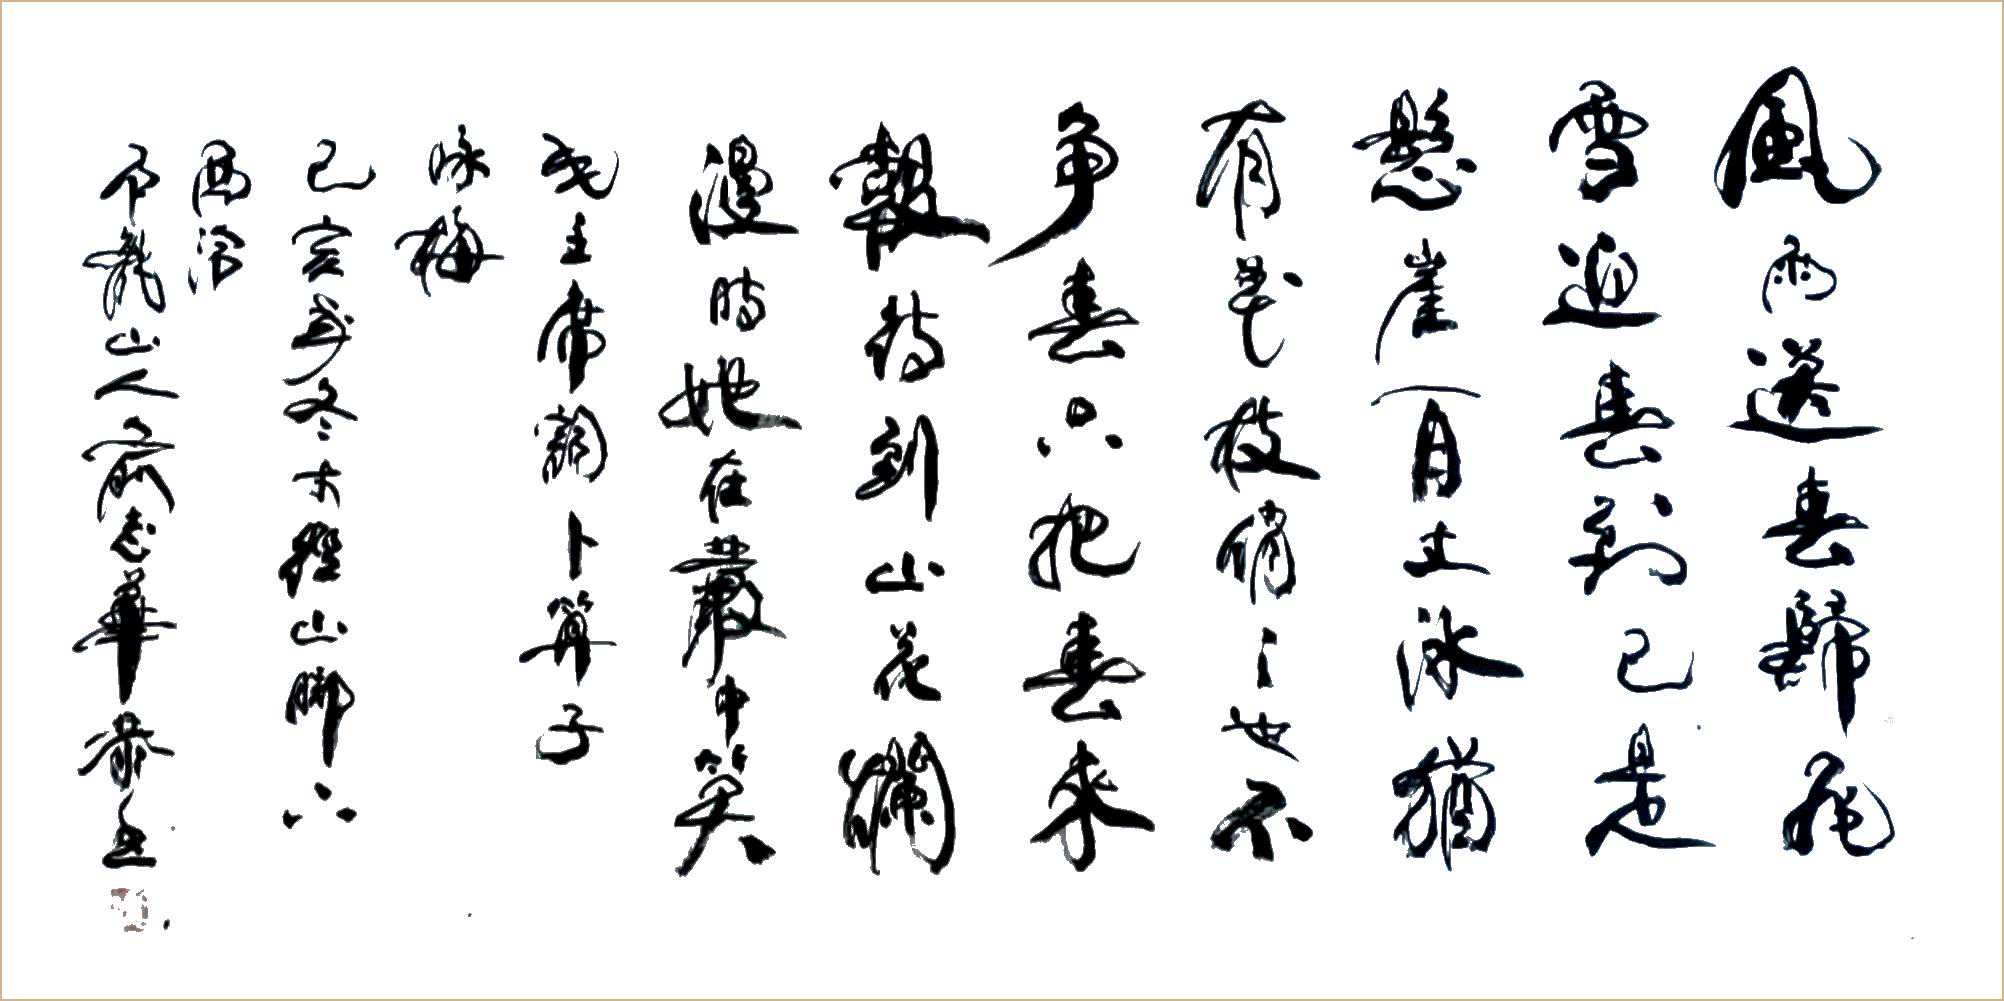 風雨送春歸飛
雪迎春到已是
懸崖百丈冰猶
有花枝俏〻也不
爭春只把春來
報待到山花爛
漫時她在叢中笑
毛主席詞卜算子
咏梅
己亥歲冬於徑山腳下
西泠
龍山人志華恭書